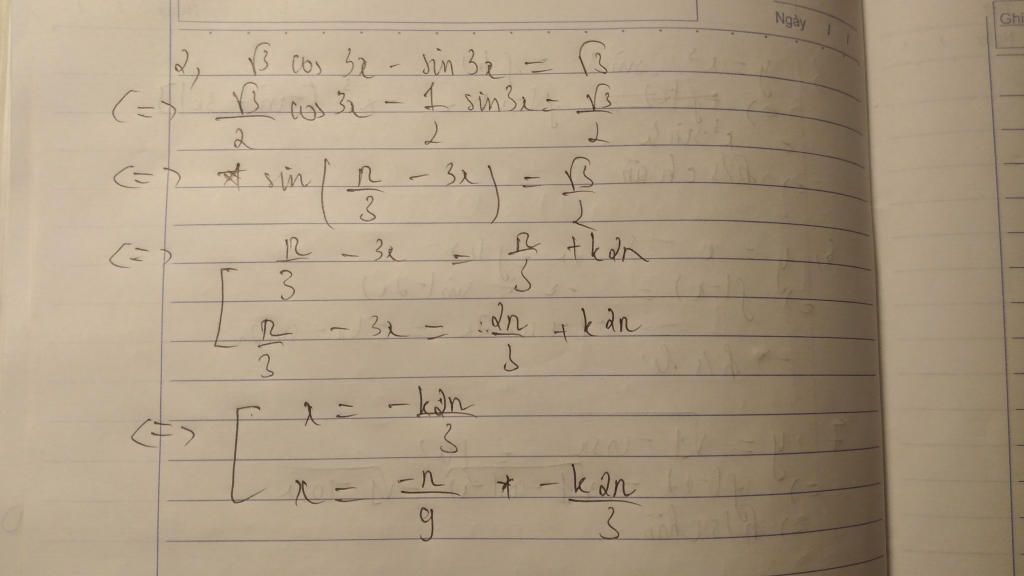 Ngày / /
Ghi
2, √3 cos 3x - sin 3x = √3
<=> √3/2 cos 3x - 1/2 sin 3x = √3/2
<=> sin(π/3 - 3x) = √3/2
<=> [ π/3 - 3x = π/3 + k2π
π/3 - 3x = 2π/3 + k2π
<=> [ x = -k2π/3
x = -π/9 - k2π/3